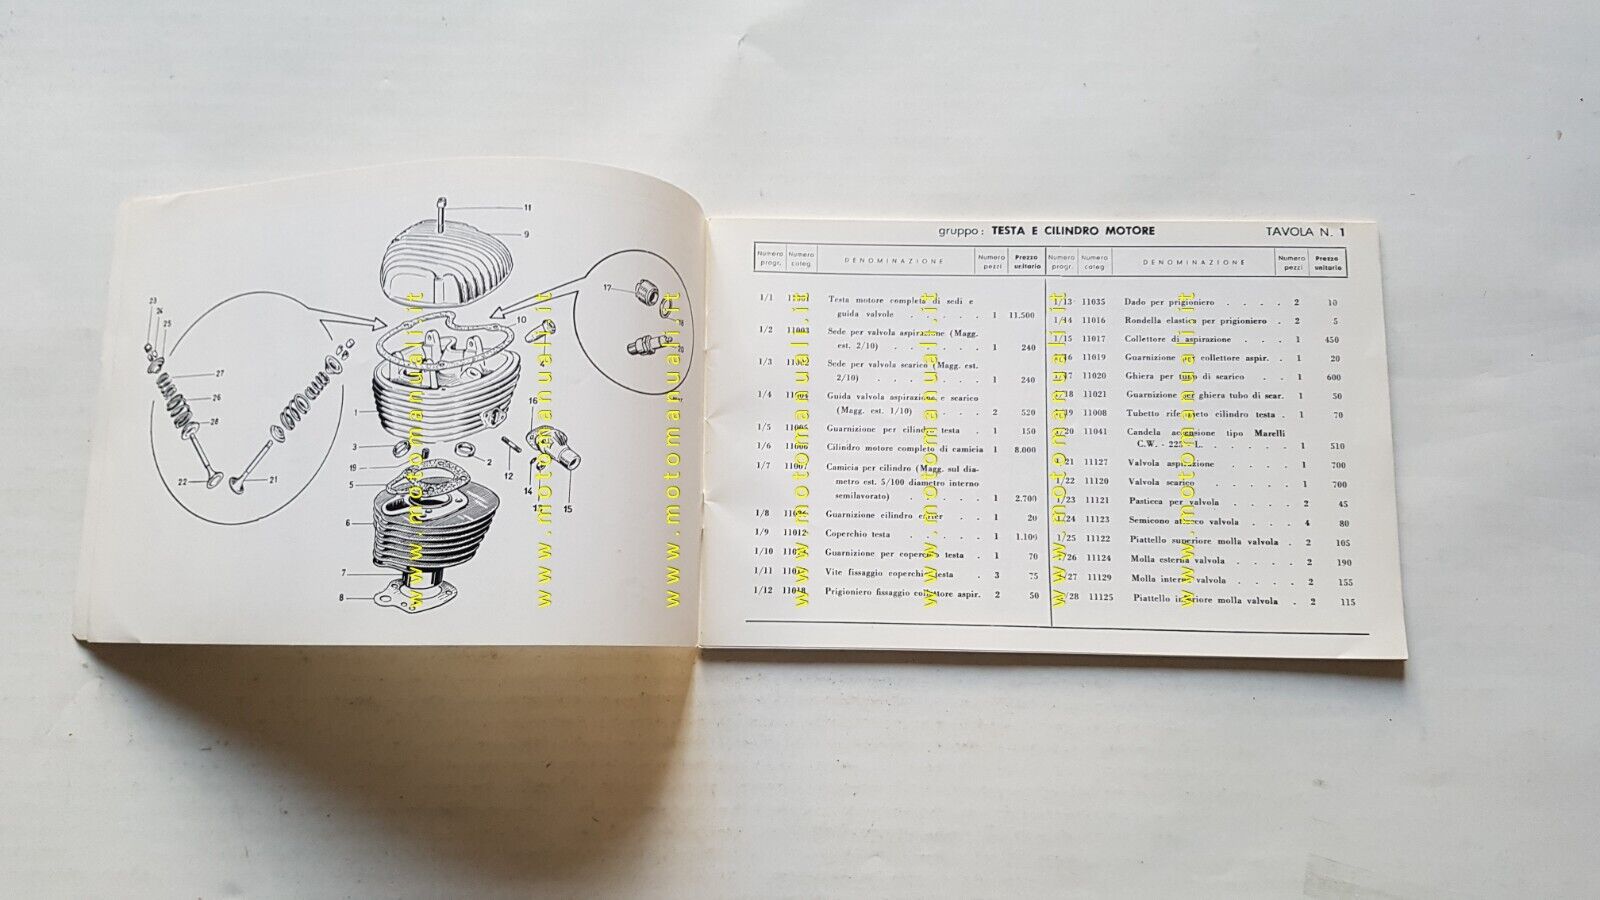 11
9
10
17
18
20
23
24
25
27
26
28
22
21
1
4
16
3
2
12
19
5
14
13
15
6
7
8
gruppo: TESTA E CILINDRO MOTORE TAVOLA N. 1
Numero progr. Numero categ. DENOMINAZIONE Numero pezzi Prezzo unitario Numero progr. Numero categ. DENOMINAZIONE Numero pezzi Prezzo unitario
1/1 Testa motore completa di sedi e
guida valvole . . . . . 1 11.500
1/2 11003 Sede per valvola aspirazione (Magg.
est. 2/10) . . . . . . 1 240
1/3 11002 Sede per valvola scarico (Magg. est.
2/10) . . . . . . . 1 240
1/4 11004 Guida valvola aspirazione e scarico
(Magg. est. 1/10) . . . . 2 520
1/5 11005 Guarnizione per cilindro testa . 1 150
1/6 11006 Cilindro motore completo di camicia 1 8.000
1/7 11007 Camicia per cilindro (Magg. sul dia-
metro est. 5/100 diametro interno
semilavorato) . . . . . 1 2.700
1/8 Guarnizione cilindro carter . . 1 20
1/9 11012 Coperchio testa . . . . . 1 1.100
1/10 Guarnizione per coperchio testa . 1 70
1/11 Vite fissaggio coperchio testa . 3 75
1/12 11018 Prigioniero fissaggio collettore aspir. 2 50
1/13 11035 Dado per prigioniero . . . . 2 10
1/44 11016 Rondella elastica per prigioniero . 2 5
1/15 11017 Collettore di aspirazione . . . 1 450
1/16 11019 Guarnizione per collettore aspir. . 1 20
1/17 11020 Ghiera per tubo di scarico . . 1 600
1/18 11021 Guarnizione per ghiera tubo di scar. 1 50
1/19 11008 Tubetto riferimento cilindro testa . 1 70
1/20 11041 Candela accensione tipo Marelli
C.W. - 225 - L. . . . . . 1 510
1/21 11127 Valvola aspirazione . . . . 1 700
1/22 11120 Valvola scarico . . . . . 1 700
1/23 11121 Pasticca per valvola . . . . 2 45
1/24 11123 Semicono attacco valvola . . . 4 80
1/25 11122 Piattello superiore molla valvola . 2 105
1/26 11124 Molla esterna valvola . . . . 2 190
1/27 11129 Molla interna valvola . . . . 2 155
1/28 11125 Piattello inferiore molla valvola . 2 115
www.motomanuali.it
www.motomanuali.it
www.motomanuali.it
www.motomanuali.it
www.motomanuali.it
www.motomanuali.it
www.motomanuali.it